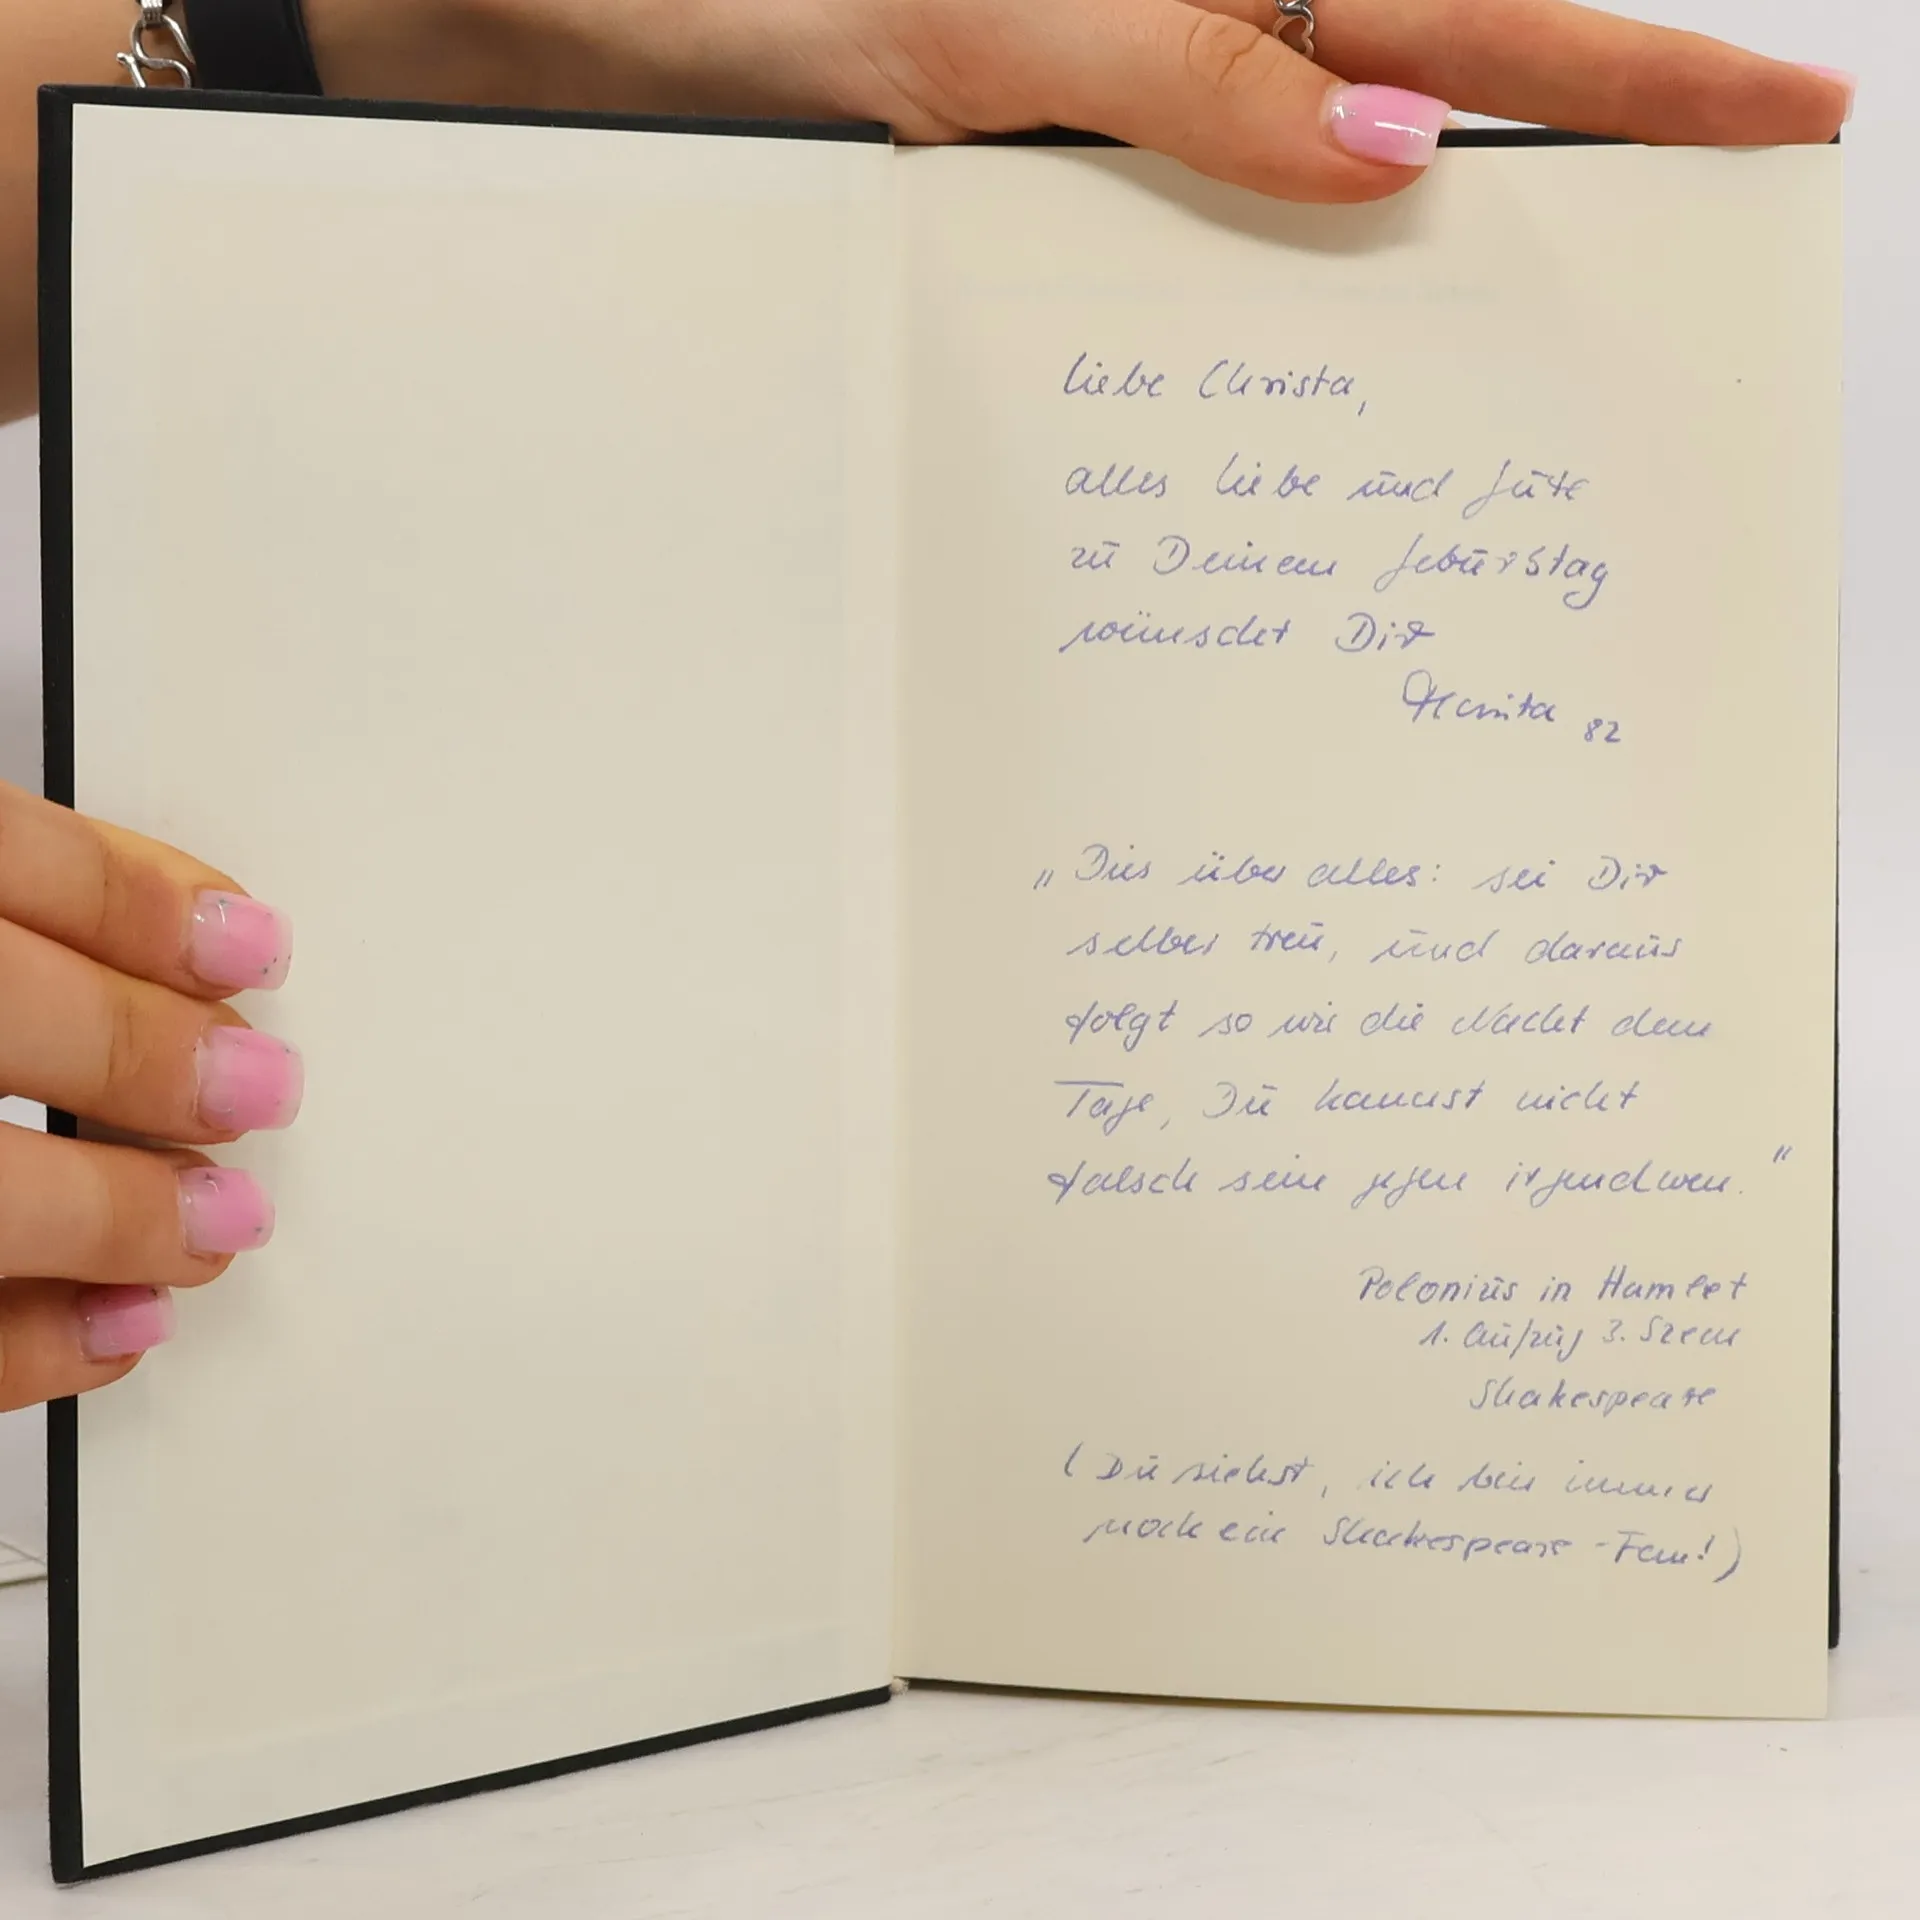 Liebe Christa,
alles Liebe und Gute
zu Deinem Geburtstag
wünschet Dir
82
„Dies über alles: sei Dir
selber treu, und daraus
folgt so wie die Nacht dem
Tage, Du kannst nicht
falsch sein gegen irgendwen."
Polonius in Hamlet
1. Aufzug 3. Szene
Shakespeare
(Du siehst, ich bin immer
noch ein Shakespeare-Fan!)